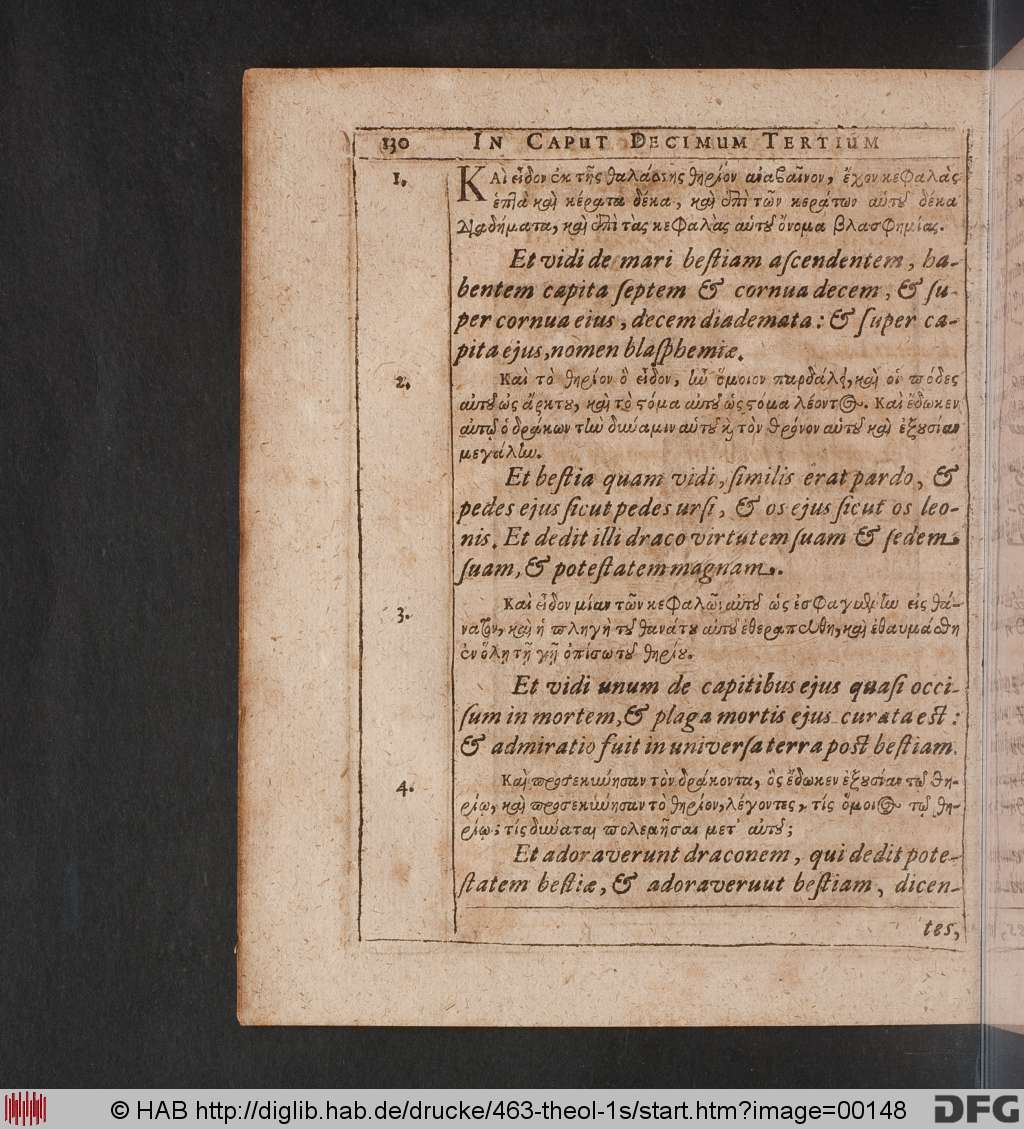 130 IN CAPUT DECIMUM TERTIUM
1. ΚΑὶ εἶδον ἐκ τῆς θαλάσσης θηρίον ἀναβαῖνον, ἔχον κεφαλὰς
ἑπτὰ καὶ κέρατα δέκα, καὶ ἐπὶ τῶν κεράτων αὐτοῦ δέκα
διαδήματα, καὶ ἐπὶ τὰς κεφαλὰς αὐτοῦ ὄνομα βλασφημίας.
Et vidi de mari beſtiam aſcendentem, ha-
bentem capita ſeptem & cornua decem, & ſu-
per cornua eius, decem diademata: & ſuper ca-
pita ejus, nomen blaſphemiæ.
2. Καὶ τὸ θηρίον ὃ εἶδον, ἦν ὅμοιον παρδάλει, καὶ οἱ πόδες
αὐτοῦ ὡς ἄρκτου, καὶ τὸ στόμα αὐτοῦ ὡς στόμα λέοντος. Καὶ ἔδωκεν
αὐτῷ ὁ δράκων τὴν δύναμιν αὐτοῦ κὶ τὸν θρόνον αὐτοῦ καὶ ἐξουσίαν
μεγάλην.
Et beſtia quam vidi, ſimilis erat pardo, &
pedes ejus ſicut pedes urſi, & os ejus ſicut os leo-
nis. Et dedit illi draco virtutem ſuam & ſedem
ſuam, & poteſtatem magnam.
3. Καὶ εἶδον μίαν τῶν κεφαλῶν αὐτοῦ ὡς ἐσφαγμένην εἰς θά-
νατον, καὶ ἡ πληγὴ τοῦ θανάτου αὐτοῦ ἐθεραπεύθη, καὶ ἐθαυμάσθη
ἐν ὅλῃ τῇ γῇ ὀπίσω τοῦ θηρίου.
Et vidi unum de capitibus ejus quaſi occi-
ſum in mortem, & plaga mortis ejus curata eſt:
& admiratio fuit in univerſa terra poſt beſtiam.
4. Καὶ προσεκύνησαν τὸν δράκοντα, ὃς ἔδωκεν ἐξουσίαν τῷ θη-
ρίῳ, καὶ προσεκύνησαν τὸ θηρίον, λέγοντες, τίς ὅμοιος τῷ θη-
ρίῳ; τίς δύναται πολεμῆσαι μετ' αὐτοῦ;
Et adoraverunt draconem, qui dedit pote-
ſtatem beſtiæ, & adoraveruut beſtiam, dicen-
tes,
© HAB http://diglib.hab.de/drucke/463-theol-1s/start.htm?image=00148
DFG